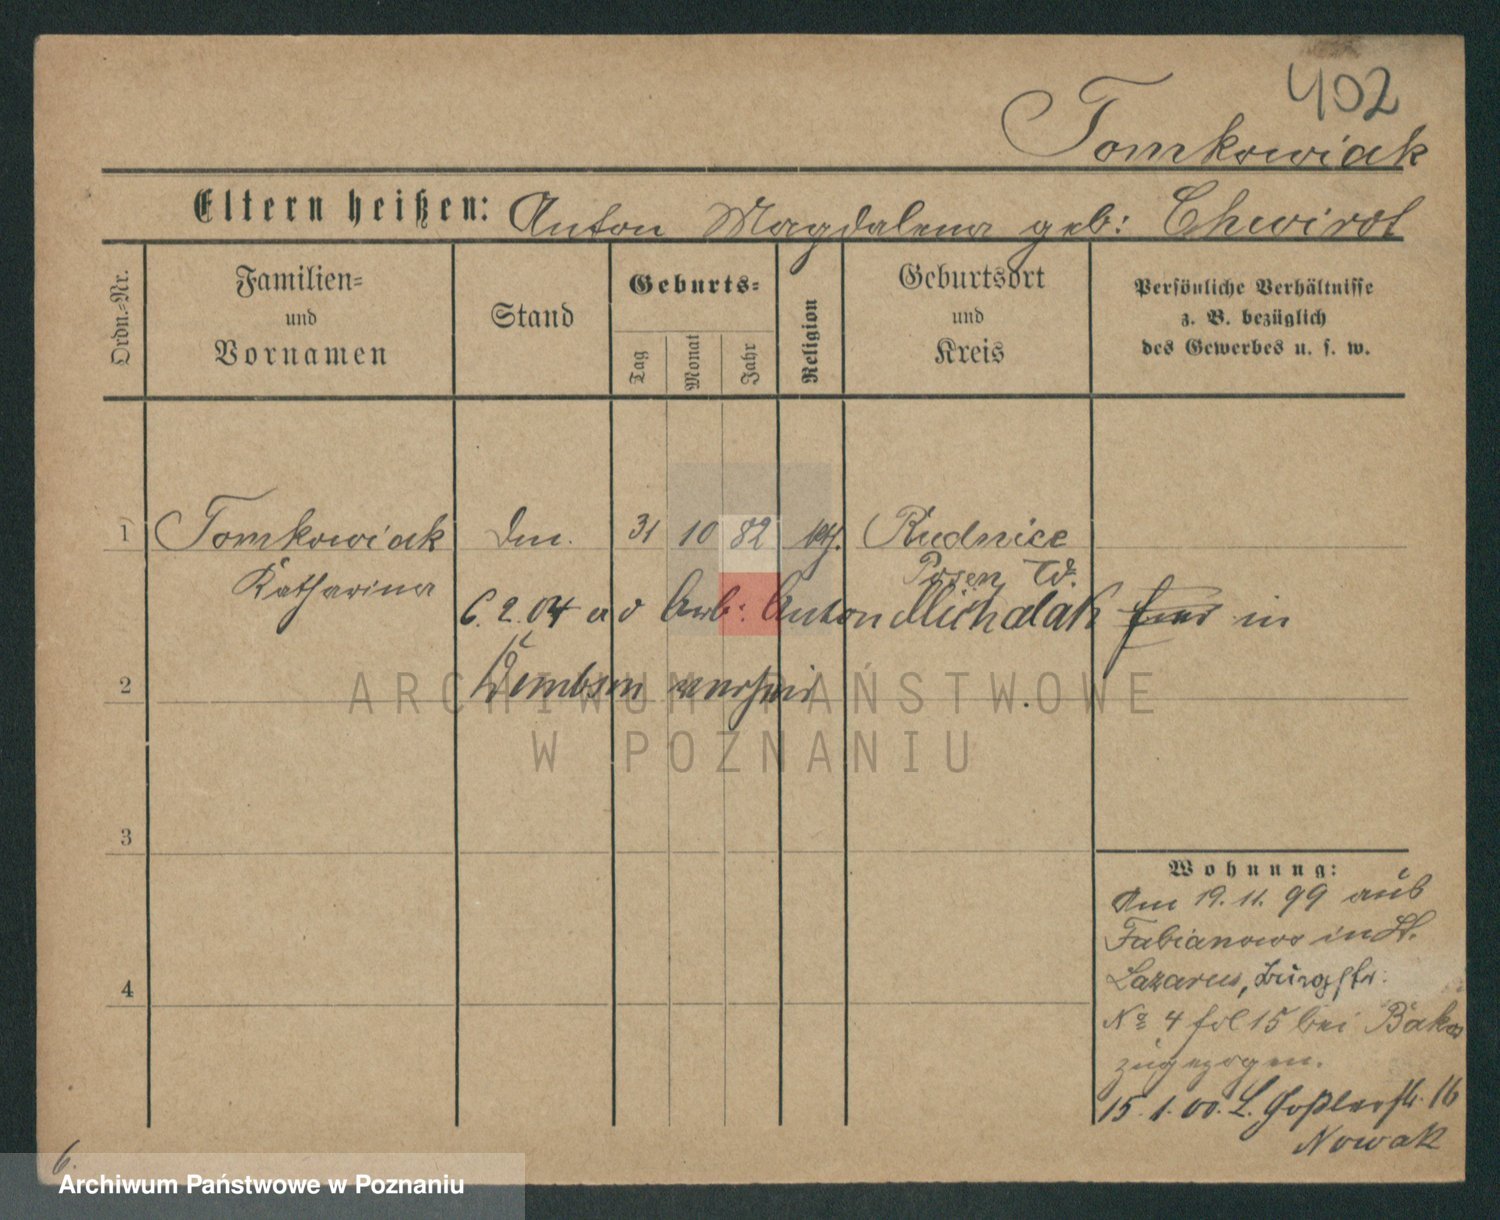 402
Tomkowiak
Eltern heißen: Anton Magdalena geb: Chwirot
Ordn.-Nr.
Familien-
und
Vornamen
Stand
Geburts-
Tag
Monat
Jahr
Religion
Geburtsort
und
Kreis
Persönliche Verhältnisse
z. B. bezüglich
des Gewerbes u. s. w.
1 Tomkowiak 31 10 82 kth. Rudnice
Katharina Posen W.
6.2.04 a d Arb: Anton Michalak in
2 Dembsen
3
4
Wohnung:
Am 19. 11. 99 aus
Fabianowo in St.
Lazarus, Burgstr:
No 4 fol 15 bei Bäk
zugezogen.
15. 1. 00. L. Goßlerstr. 16
Nowak
6.
ARCHIWUM PAŃSTWOWE
W POZNANIU
Archiwum Państwowe w Poznaniu